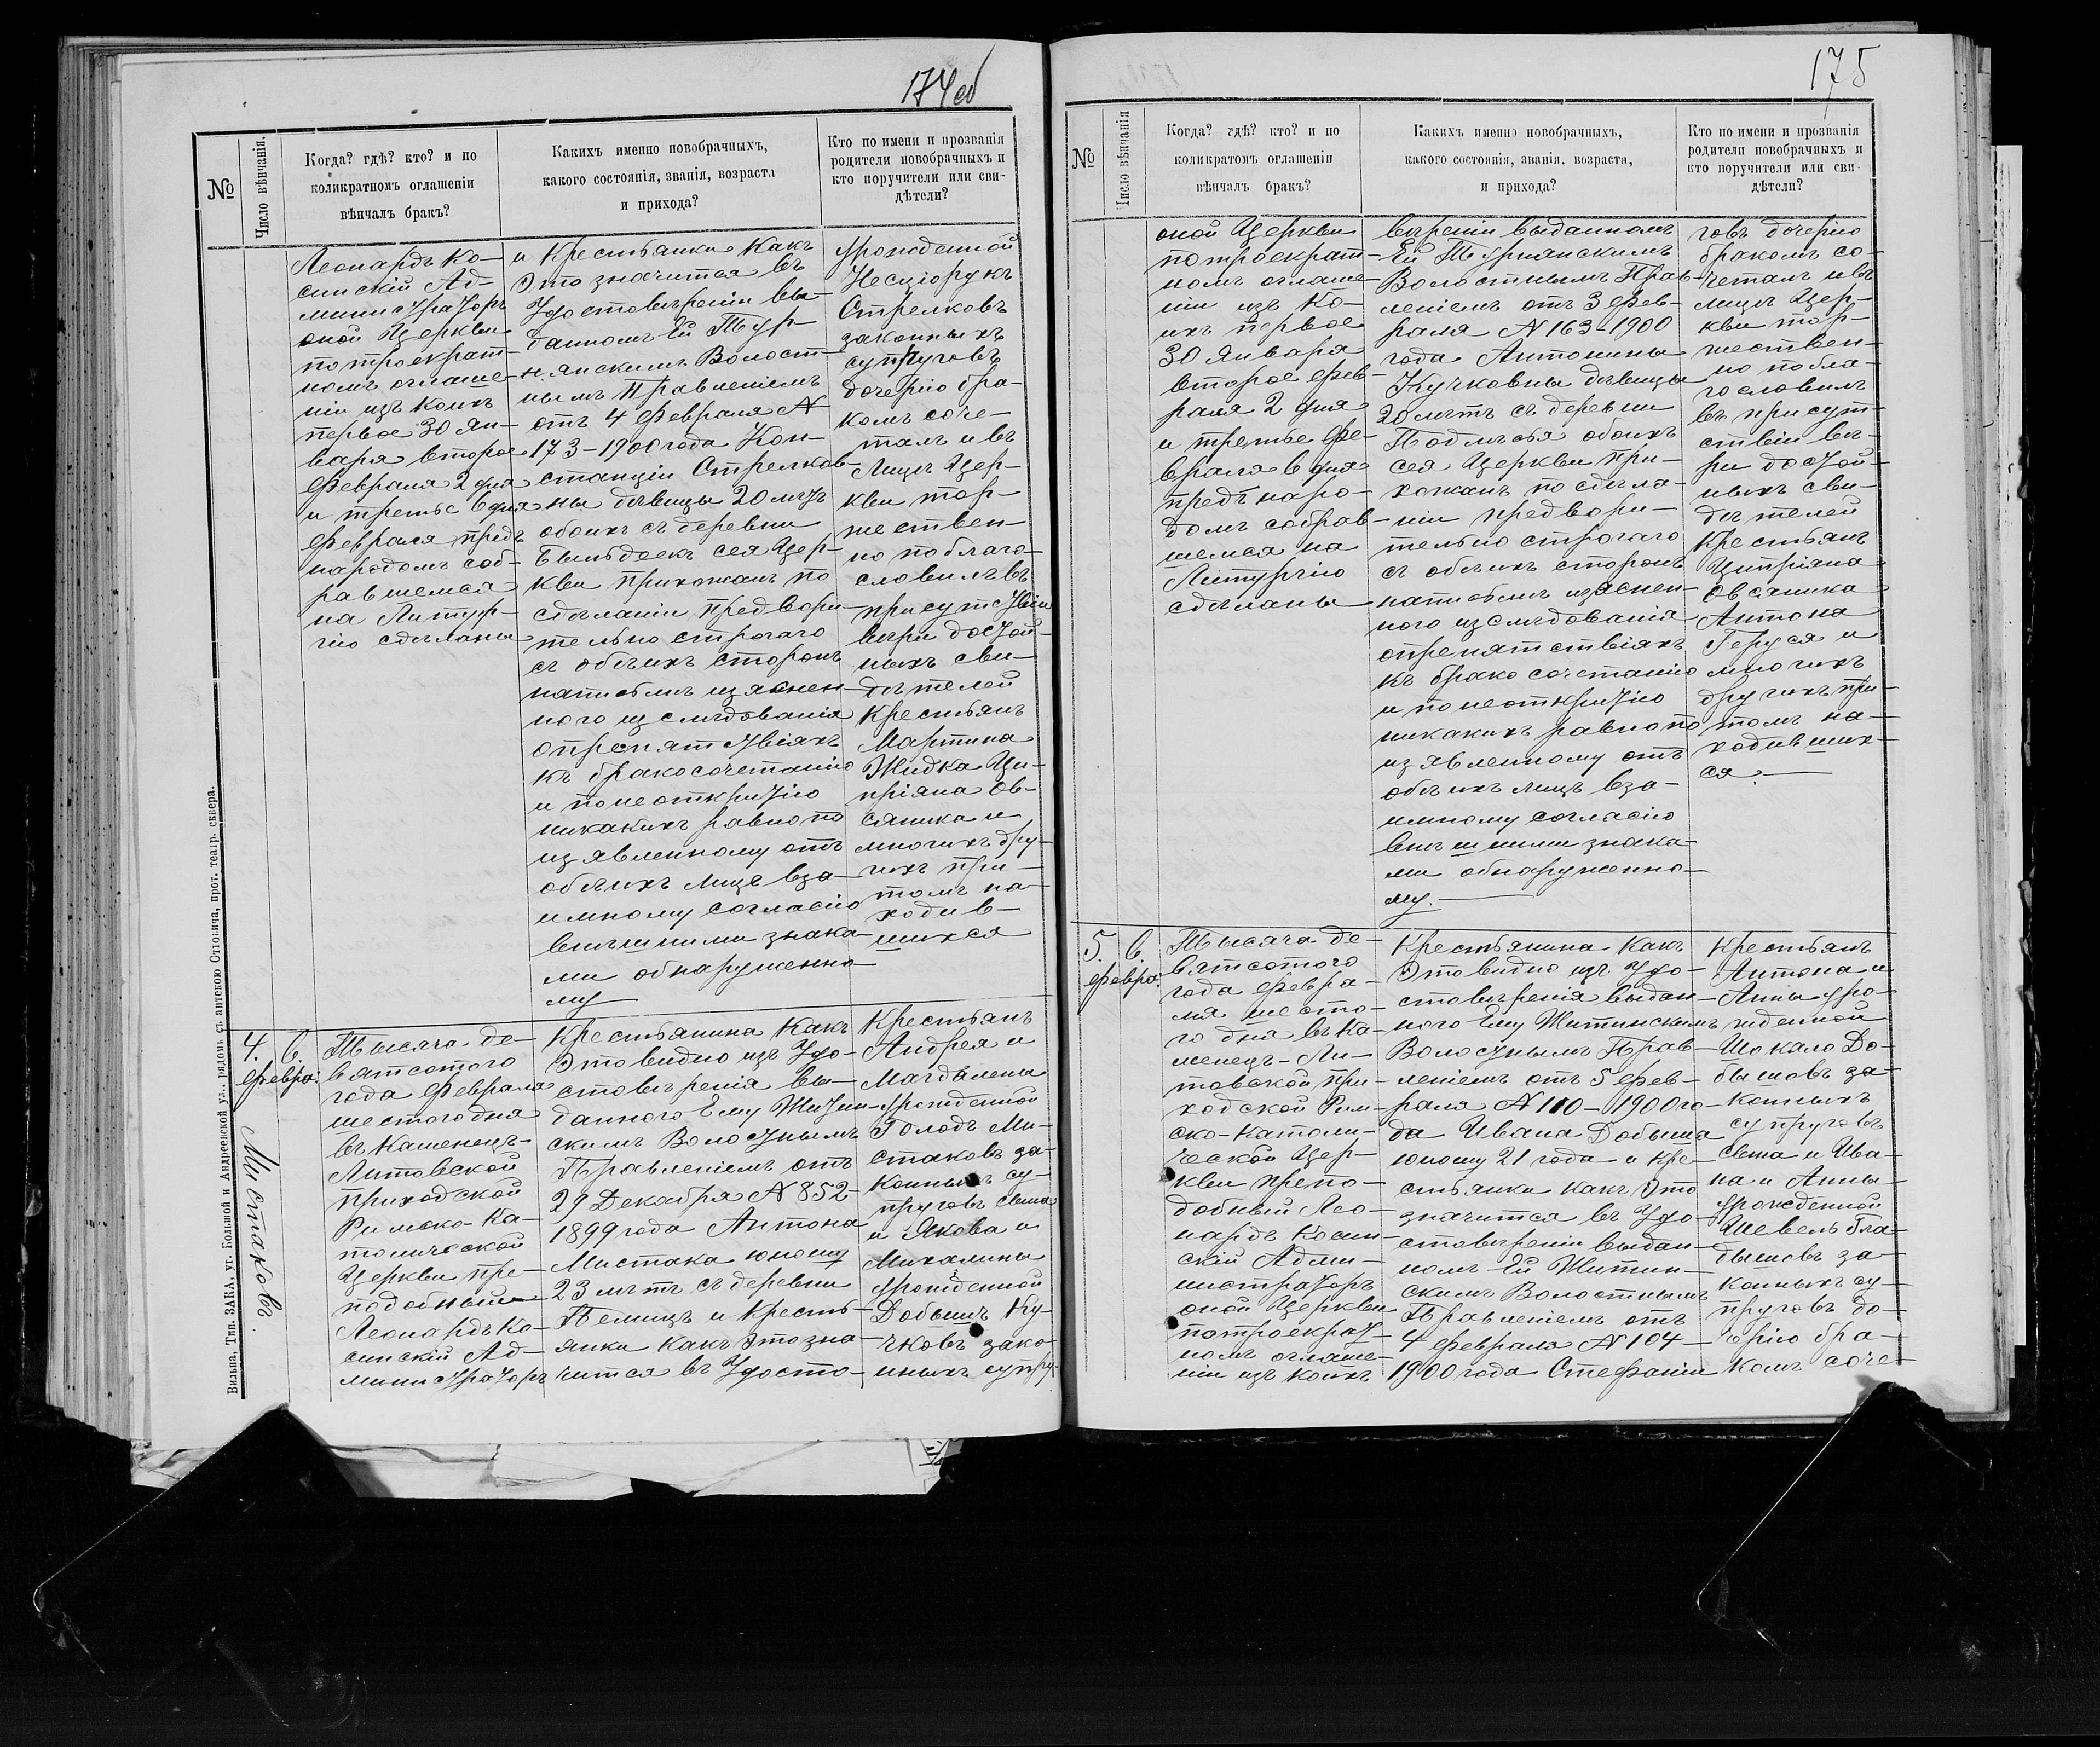 174об
№
Число вѣнчанія.
Когда? гдѣ? кто? и по
коликратномъ оглашеніи
вѣнчалъ бракъ?
Каких именно новобрачныхъ,
какого состоянія, званія, возраста
и прихода?
Кто по имени и прозванія
родители новобрачныхъ и
кто поручители или сви-
дѣтели?
Леонардъ Ко-
синскій Ад-
министраторъ
оной Церкви
по троекрат-
номъ оглаше-
ніи изъ коихъ
первое 30 Ян-
варя второе
Февраля 2 дня
и третье 6 дня
Февраля предъ
народомъ соб-
равшемся
на Литур-
гію сдѣланы
и Крестьянки какъ
Это значится въ
Удостовѣреніи вы-
данномъ Ей Тур-
нянскимъ Волост-
нымъ Правленіемъ
отъ 4 Февраля N
173-1900 года Кон-
станціи Стрелков-
ны дѣвицы 20 лѣтъ
обоихъ съ деревни
сея Цер-
кви прихожанъ по
сдѣланіи предвори-
тельно строгаго
съ обѣихъ сторонъ
написьмѣ изяснен-
ного изслѣдованія
опрепятствіяхъ
къ бракосочетанію
и понеоткрытію
никакихъ равно по
изявленному отъ
обѣихъ лицъ вза-
имному согласію
внѣшними знака-
ми обнаруженно-
му
урожденной
Несцюрукъ
Стрелковъ
законныхъ
супруговъ
дочерію бра-
комъ соче-
талъ и въ
Лицѣ Цер-
кви тор-
жествен-
но поблаго-
словилъ въ
присутствіи
вѣри достой-
ныхъ сви-
дѣтелей
Крестьянъ
Мартина
Жидка Ци-
пріяна Ов-
сяника и
многихъ дру-
гихъ при-
томъ на-
ходив-
шихся
4.
6.
Февра:
Мистаковъ.
Тысяча де-
вятсотого
года Февраля
шестого дня
въ Каменецъ-
Литовской
приходской
Римско-Ка-
толической
Церкви пре-
подобный
Леонардъ Ко-
синскій Ад-
министраторъ
Крестьянина Какъ
Это видно изъ Удо-
стовѣренія вы-
данного Ему Житин-
скимъ Волостнымъ
Правленіемъ отъ
29 Декабря N 852-
1899 года Антона
Мистака юношу
23 лѣтъ съ деревни
Пелищъ и Кресть-
янки какъ Это зна-
чится въ Удосто-
Крестьянъ
Андрея и
Магдалены
урожденной
Голодъ Ми-
стаковъ за-
конныхъ су-
пруговъ сына
и Якова и
Михалины
урожденной
Добышъ Ку-
чковъ зако-
нныхъ супру-
Вильна, Тип. ЗАКА, уг. Большой и Андреевской ул., рядомъ съ аптекою Оттовича, прот. театр. сквера.
175
№
Число вѣнчанія
Когда? гдѣ? кто? и по
коликратомъ оглашеніи
вѣнчалъ бракъ?
Какихъ именно новобрачныхъ,
какого состоянія, званія, возраста,
и прихода?
Кто по имени и прозванія
родители новобрачныхъ и
кто поручители или сви-
дѣтели?
оной Церкви
по троекрат-
номъ оглаше-
ніи изъ Ко-
ихъ первое
30 Января
второе Фев-
раля 2 дня
и третье Фе-
враля 6 дня
предъ наро-
домъ собрав-
шемся на
Литургію
сдѣланы
вѣреніи выданномъ
Ей Турнянскимъ
Волостнымъ Прав-
леніемъ отъ 3 Фев-
раля N 163-1900
года Антонины
Кучковны дѣвицы
20 лѣтъ съ деревни
Подлѣсья обоихъ
сея Церкви при-
хожанъ по сдѣла-
ніи предвори-
тельно строгаго
съ обѣихъ сторонъ
написьмѣ изяснен-
ного изслѣдованія
опрепятствіяхъ
къ бракосочетанію
и понеоткрытію
никакихъ равно по
изявленному отъ
обѣихъ лицъ вза-
имному согласію
внѣшними знака-
ми обнаруженно-
му.
говъ дочерію
бракомъ со-
четалъ и въ
лицѣ Цер-
кви тор-
жествен-
но побла-
гословилъ
въ присут-
ствіи вѣ-
ри достой-
ныхъ сви-
дѣтелей
Крестьянъ
Ципріяна
Овсяника
Антона
Геруся и
многихъ
другихъ при-
томъ на-
ходивших-
ся.
5.
6.
Февра:
Тысяча де-
вятсотого
года Февра-
ля шесто-
го дня въ Ка-
менецъ-Ли-
товской при-
ходской Рим-
ско-Католи-
ческой Цер-
кви препо-
добный Лео-
нардъ Косин-
скій Адми-
нистраторъ
оной Церкви
по троекрат-
номъ оглаше-
ніи изъ коихъ
Крестьянина Какъ
Это видно изъ Удо-
стовѣренія выдан-
ного Ему Житинскимъ
Волостнымъ Прав-
леніемъ отъ 5 Фев-
раля N 110-1900 го-
да Ивана Добыша
юношу 21 года-и Кре-
стьянки какъ Это
значится въ Удо-
стовѣреніи выдан-
номъ Ей Житин-
скимъ Волостнымъ
Правленіемъ отъ
4 Февраля N 104-
1900 года Стефаніи
Крестьянъ
Антона и
Анны уро-
жденной
Шокало До-
бышовъ за-
конныхъ
супруговъ
сына и Ива-
на и Анны
урожденной
Шевель Гла-
дышовъ за-
конныхъ су-
пруговъ до-
черію бра-
комъ соче-